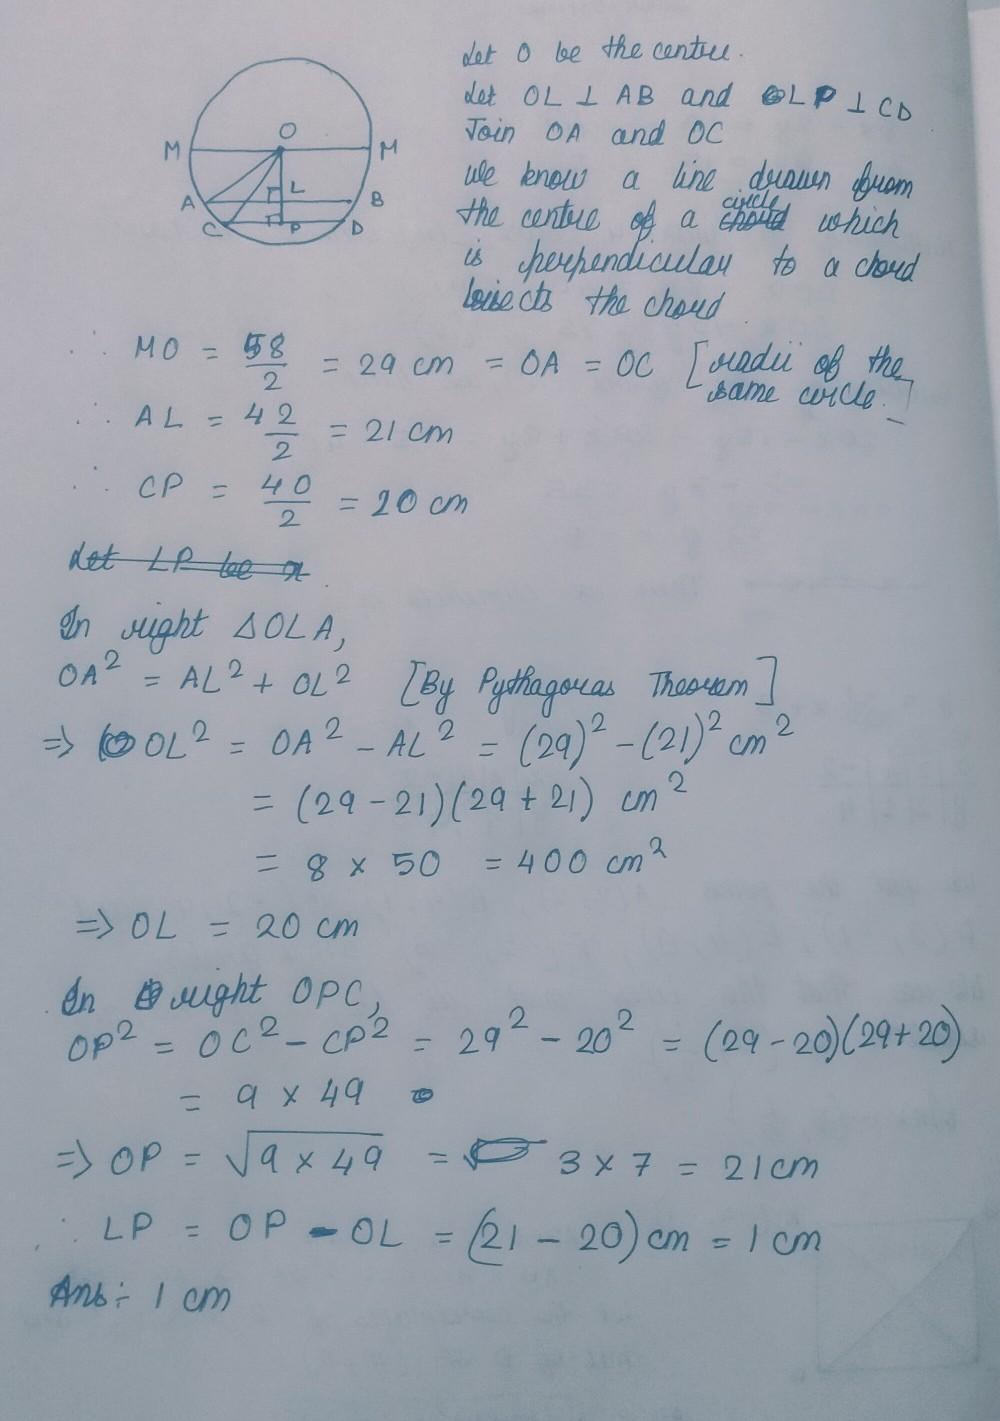 Let O be the centre.
Let OL ⊥ AB and LP ⊥ CD
Join OA and OC
we know a line drawn from
the centre of a circle which
is perpendicular to a chord
bisects the chord
M O M
A L B
C P D
∴ MO = 58/2 = 29 cm = OA = OC [radii of the
same circle.]
∴ AL = 42/2 = 21 cm
∴ CP = 40/2 = 20 cm
Let LP be x
In right △OLA,
OA² = AL² + OL² [By Pythagoras Theorem]
⇒ OL² = OA² - AL² = (29)² - (21)² cm²
= (29 - 21)(29 + 21) cm²
= 8 × 50 = 400 cm²
⇒ OL = 20 cm
In right OPC,
OP² = OC² - CP² = 29² - 20² = (29 - 20)(29 + 20)
= 9 × 49
⇒ OP = √9 × 49 = 3 × 7 = 21 cm
∴ LP = OP - OL = (21 - 20) cm = 1 cm
Ans:- 1 cm